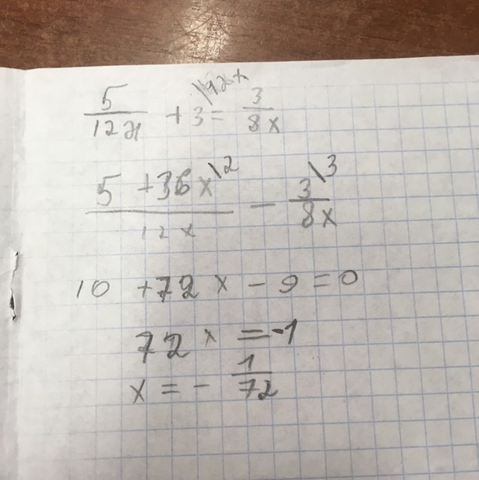 5/12x + 3\12x = 3/8x
5 + 36x\2/12x - 3\3/8x
10 + 72x - 9 = 0
72x = -1
x = - 1/72